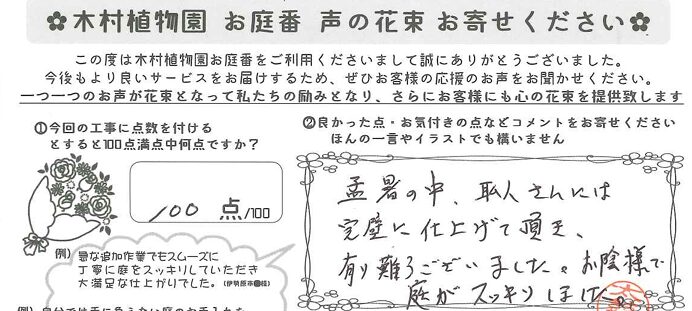 ✿木村植物園 お庭番 声の花束 お寄せください✿
この度は木村植物園お庭番をご利用くださいまして誠にありがとうございました。
今後もより良いサービスをお届けするため、ぜひお客様の応援のお声をお聞かせください。
一つ一つのお声が花束となって私たちの励みとなり、さらにお客様にも心の花束を提供致します
①今回の工事に点数を付ける
とすると100点満点中何点ですか?
100 点/100
例)
急な追加作業でもスムーズに
丁寧に庭をスッキリしていただき
大満足な仕上がりでした。(伊勢原市●様)
②良かった点・お気付きの点などコメントをお寄せください
ほんの一言やイラストでも構いません
孟暑の中、職人さんには
完璧に仕上げて頂き、
有り難うございました。お陰様で
庭がスッキリしました。